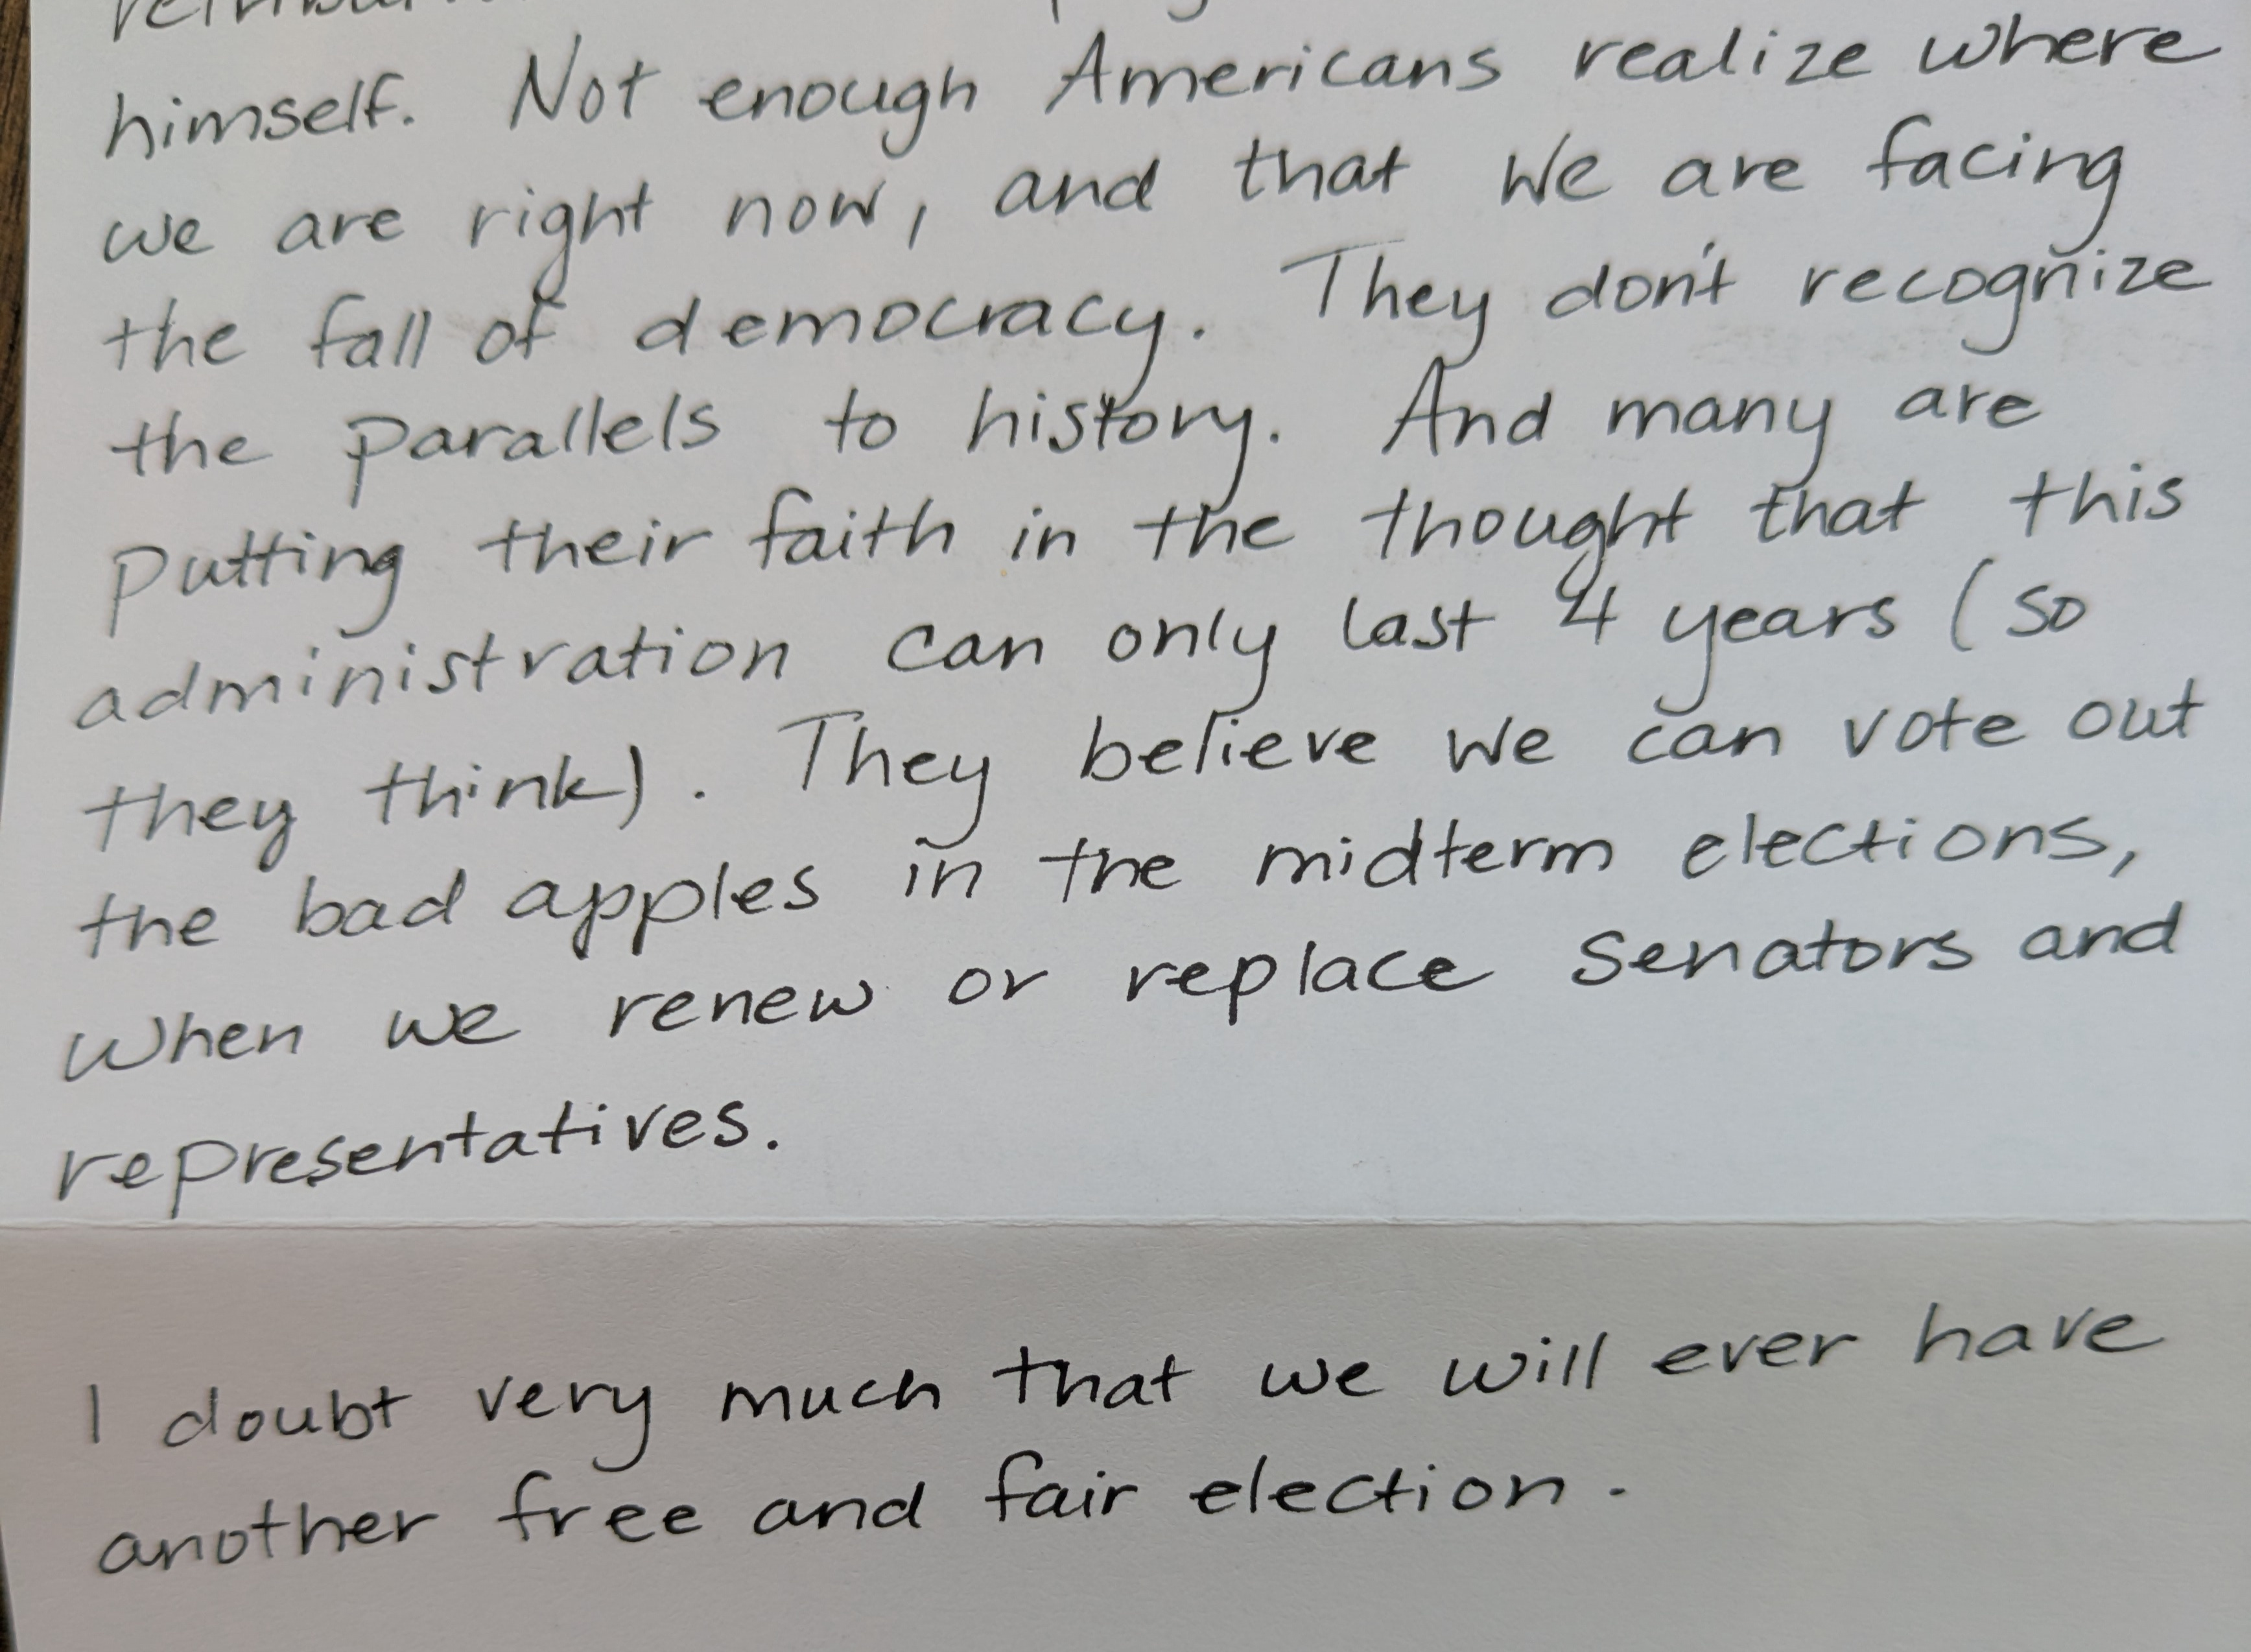 himself. Not enough Americans realize where
we are right now, and that we are facing
the fall of democracy. They don't recognize
the parallels to history. And many are
putting their faith in the thought that this
administration can only last 4 years (so
they think). They believe we can vote out
the bad apples in the midterm elections,
when we renew or replace Senators and
representatives.
I doubt very much that we will ever have
another free and fair election.